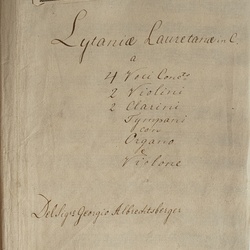 Lytaniæ Lauretanæ in C.
a
4 Voci Conc:to
2 Violini
2 Clarini
Tympani
con
Organo
e
Violone
Del Sig: Georgio Albrechtsberger